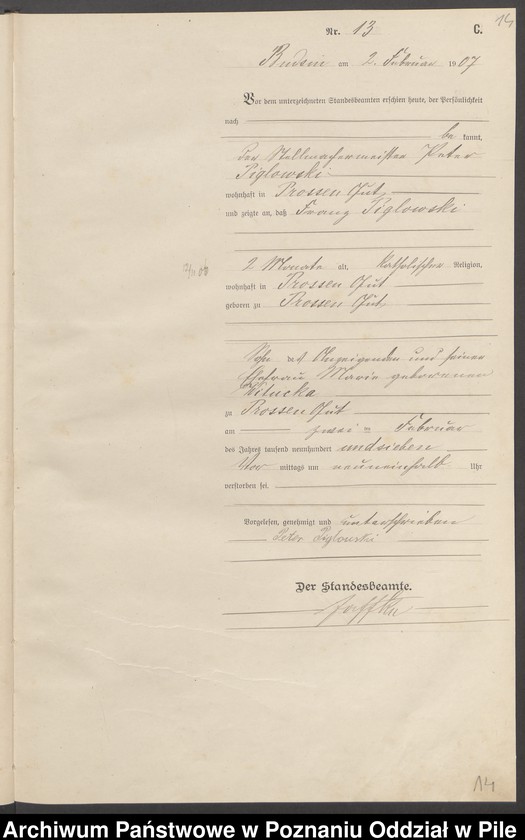 14
Nr. 13 C.
Budsin am 2. Februar 1907
Vor dem unterzeichneten Standesbeamten erschien heute, der Persönlichkeit
nach
bekannt,
der Stellmachermeister Peter
Piglowski
wohnhaft in Prossen Gut
und zeigte an, daß Franz Piglowski
2 Monate alt, katholischer Religion,
wohnhaft in Prossen Gut
geboren zu Prossen Gut,
Sohn des Anzeigenden und seiner
Ehefrau Marie geborenen
zu Prossen Gut
am zwei = Februar
des Jahres tausend neunhundert und sieben
Vor mittags um neuneinhalb Uhr
verstorben sei.
Vorgelesen, genehmigt und unterschrieben
Peter Piglowski
Der Standesbeamte.
14
Archiwum Państwowe w Poznaniu Oddział w Pile